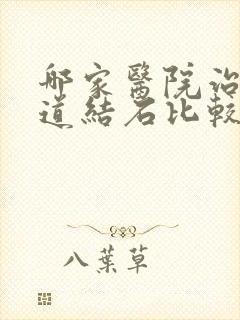 哪家醫院治
道結石比較
八葉草